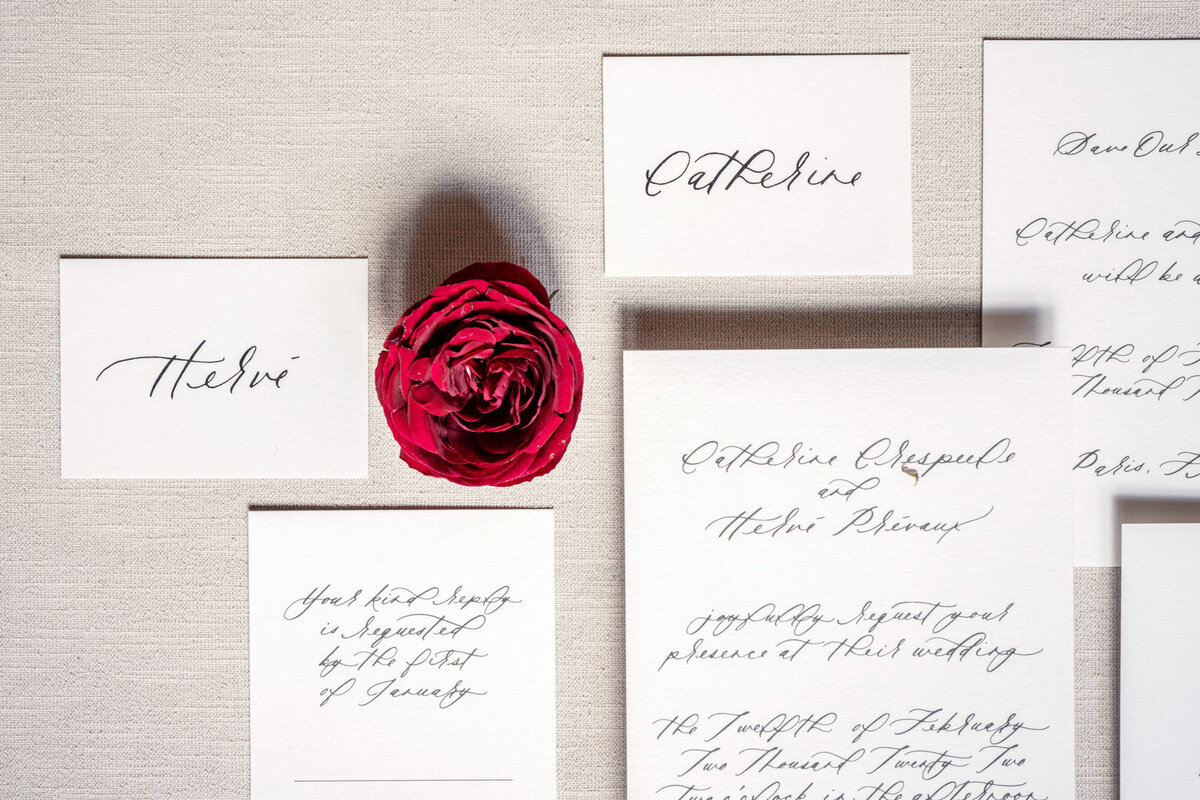 Hervé
Catherine
Save Our
Catherine and
will be
of
Thousand
Paris,
Catherine
and
Hervé Prévaux
joyfully request your
presence at their wedding
the Twelfth of February
Two Thousand Twenty Two
Two o'clock in the afternoon
Your kind reply
is requested
by the first
of January